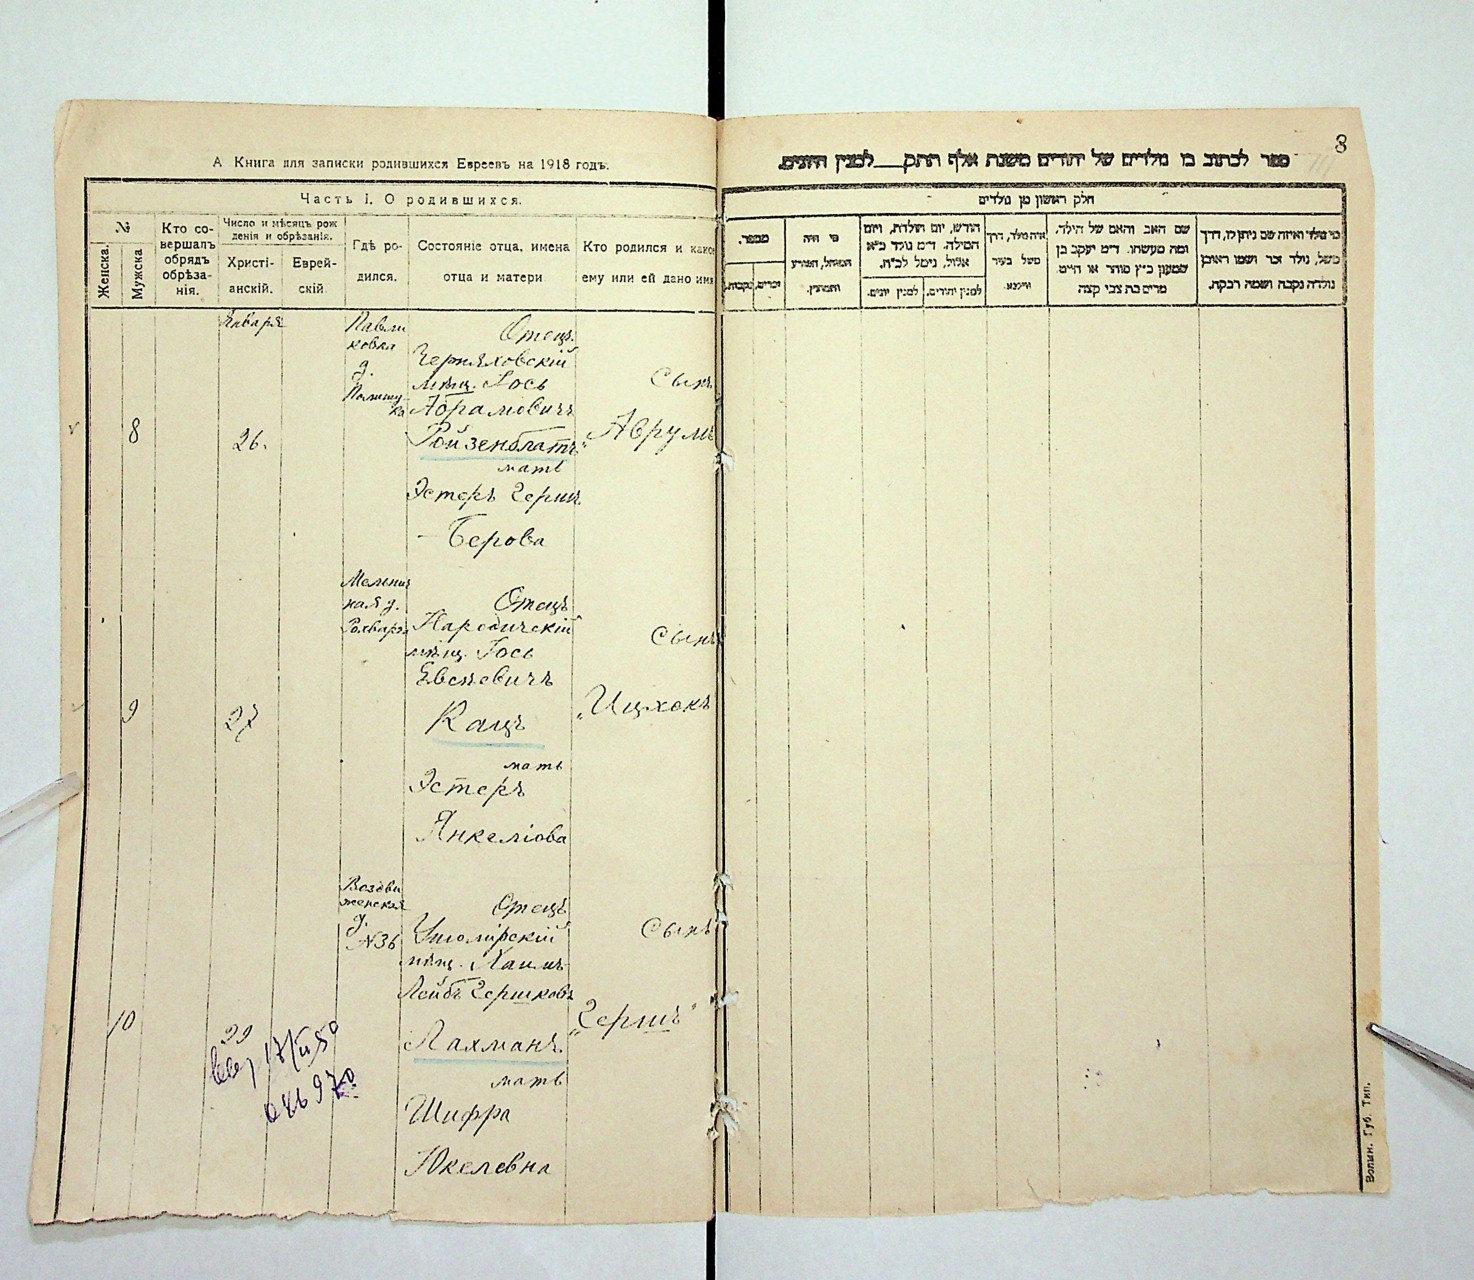 А Книга для записки родившихся Евреевъ на 1918 годъ.
Часть I. О родившихся.
№
Женска.
Мужска
Кто со-
вершалъ
обрядъ
обрѣза-
нія.
Число и мѣсяцъ рож
денія и обрѣзанія.
Христі-
анскій.
Еврей-
скій
Гдѣ ро-
дился.
Состояніе отца, имена
отца и матери
Кто родился и како
ему или ей дано имя
8
Января
26.
Павли
ковка
д.
Отецъ
Черняховскій
мѣщ. Іось
Абрамовичъ
Ройзенблатъ
мать
Эстеръ Герш
-Берова
Сынъ
Аврумъ"
9
27
д.
Отецъ
Народичскій
мѣщ. Іось
Евсѣевичъ
Кацъ
мать
Эстеръ
Янкеліова
Сынъ
„Ицхокъ
10
29
Воздви
женская
д.
№36
Отецъ
мѣщ. Хаимъ
Лейбъ Гершковъ
Лахманъ
мать
Шифра
Юкелевна
Сынъ
„Гершъ"
3
ספר לכתוב בו נולדים של יהודים משנת אלף תתק___למנין היונים.
חלק ראשון מן נולדים
מספר.
זכרים.
נקבות.
מי היה
המוהל, הפורע
והמוצץ.
החודש, יום הולדת, ויום
המילה. ד״מ נולד כ״א
אלול, נימל לכ״ח.
למנין יונים.
למנין יהודים.
איה נולד, דרך
משל בעיר
ווילנא.
שם האב והאם של הילד.
ומה מעשהו. ד״מ יעקב בן
שמעון כ״ץ סוחר או חייט.
מרים בת צבי קצה
מי נולד ואיזה שם ניתן לו, דרך
משל, נולד זכר ושמו ראובן
נולדה נקבה ושמה רבקה.
Волын. Губ. Тип.